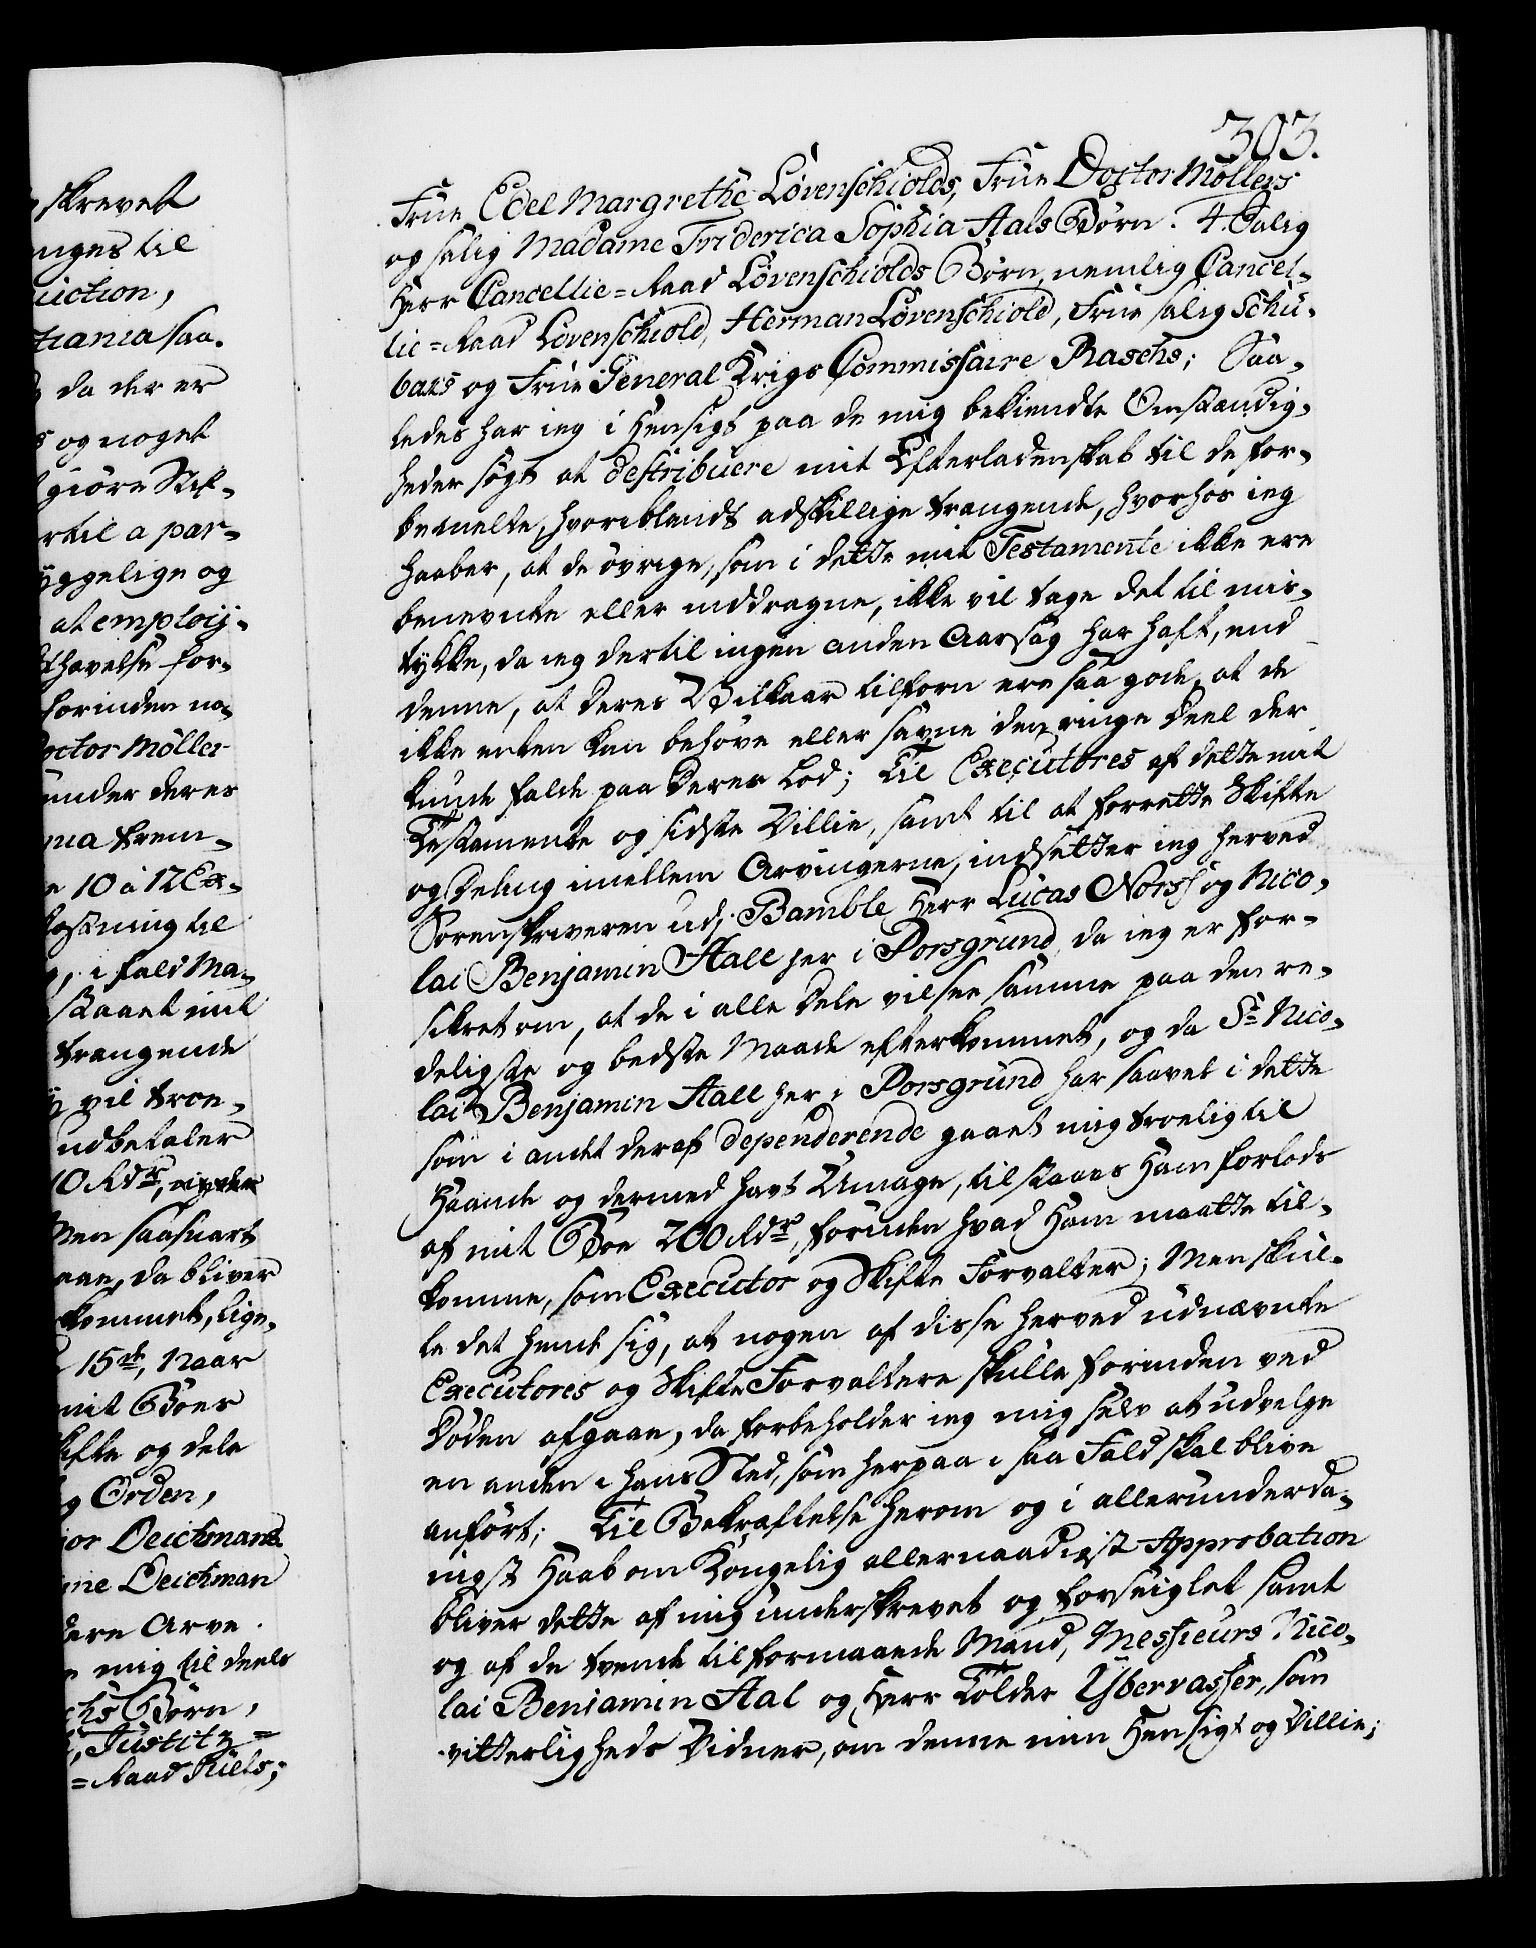 303.
Frue Edel Margrethe Løvenschiolds, Frue Doctor Møllers
og salig Madame Friderica Sophia Aals Børn. 4. Salig
Herr Cancellie=Raad Løvenschiolds Børn, nemlig Cancel-
lie=Raad Løvenschiold, Herman Løvenschiold, Frue salig Schu-
barts og Frue General Krigs Commissaire Raschs; Saa-
ledes har ieg i Hensigt paa de mig bekiendte Omstændig-
heder søgt at destribuere mit Efterladenskab til de for-
bemelte, hvoriblandt adskillige trængende, hvorhos ieg
haaber, at de øvrige, som i dette mit Testamente ikke ere
benevnte eller inddragne, ikke vil tage det til mis-
tykke, da ieg dertil ingen anden Aarsag har haft, end
denne, at deres Vilkaar tilforn ere saa gode, at de
ikke enten kan behøve eller savne den ringe Deel der
kunde falde paa deres Lod; Til Executores af dette mit
Testamente og sidste Villie, samt til at forrette Skifte
og Deling imellem Arvingerne, indsetter ieg herved
Sorenskriveren udj Bamble Herr Lucas Norss og Nico-
lai Benjamin Aall her i Porsgrund, da ieg er for-
sikret om, at de i alle Dele vil see samme paa den re-
deligste og bedste Maade efterkommet, og da Sr Nico-
lai Benjamin Aall her i Porsgrund har saavel i dette
som i andet deraf dependerende gaaet mig troelig til
Haande og dermed havt Umage, tilstaaes Ham forlods
af mit Boe 200 Rdr, foruden hvad Ham maatte til-
komme, som Executor og Skifte Forvalter; Men skul-
le det hende sig, at nogen af disse herved udnævnte
Executores og Skifte Forvaltere skulle forinden ved
Døden afgaae, da forbeholder ieg mig selv at udvelge
en anden i hans Sted, som herpaa i saa Fald skal blive
anført; Til Bekræftelse herom og i allerunderda-
nigst Haab om Kongelig allernaadigst Approbation
bliver dette af mig underskrevet og forseiglet samt
og af de tvende tilformaaede Mænd, Messieurs Nico-
lai Benjamin Aal og Herr Tolder Ybervasser, som
vitterligheds Vidner, om denne min Hensigt og Villie;